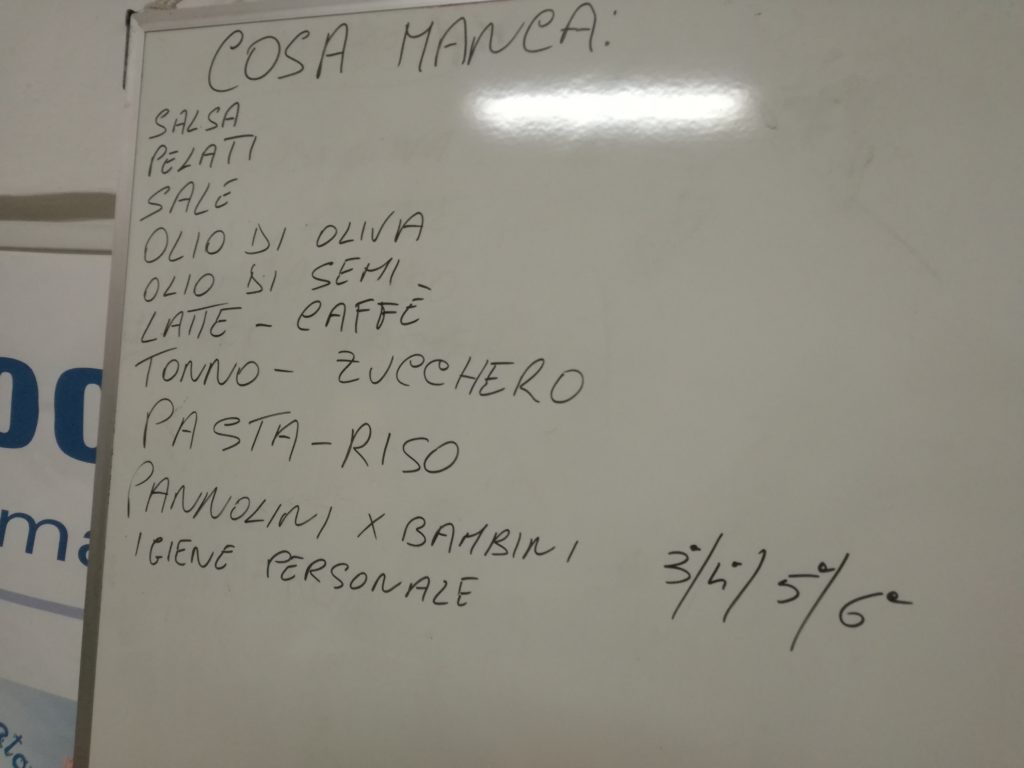 COSA MANCA:
SALSA
PELATI
SALE
OLIO DI OLIVA
OLIO DI SEMI
LATTE - CAFFÈ
TONNO - ZUCCHERO
PASTA - RISO
PANNOLINI X BAMBINI 3°/4°/5°/6°
IGIENE PERSONALE